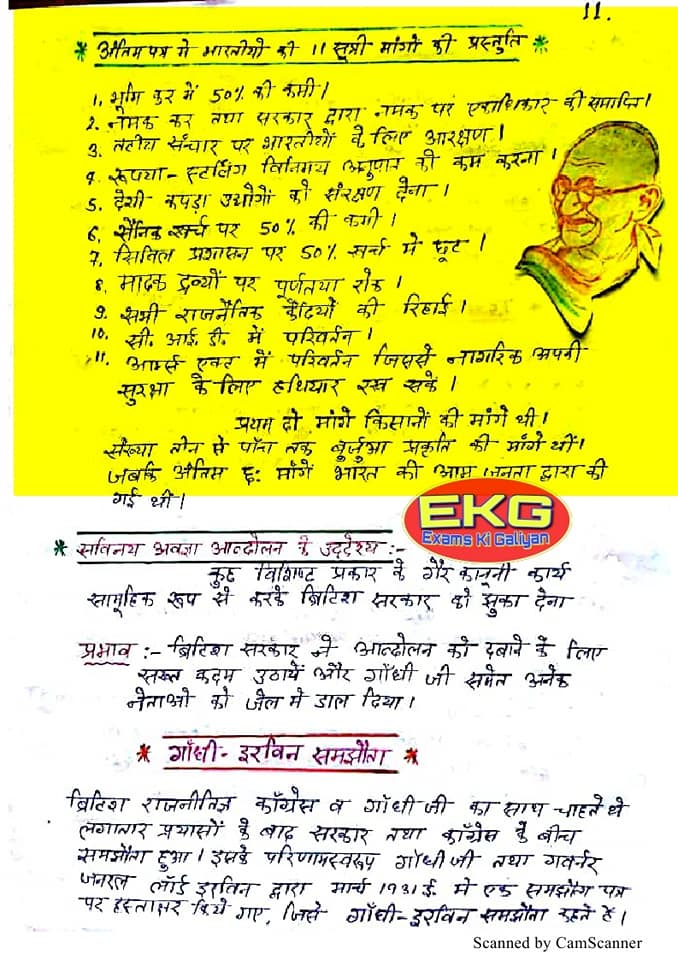 11.
* अंतिम पत्र में भारतीयों की 11 सूत्री मांगों की प्रस्तुति *
1. भूमि कर में 50% की कमी।
2. नमक कर तथा सरकार द्वारा नमक पर एकाधिकार की समाप्ति।
3. तटीय संचार पर भारतीयों के लिए आरक्षण।
4. रूपया - स्टर्लिंग विनिमय अनुपात को कम करना।
5. देशी कपड़ा उद्योगों को संरक्षण देना।
6. सैनिक खर्च पर 50% की कमी।
7. सिविल प्रशासन पर 50% खर्च में छूट।
8. मादक द्रव्यों पर पूर्णतया रोक।
9. सभी राजनैतिक कैदियों की रिहाई।
10. सी. आई. डी. में परिवर्तन।
11. आर्म्स एक्ट में परिवर्तन जिससे नागरिक अपनी
सुरक्षा के लिए हथियार रख सके।
प्रथम दो मांगे किसानों की मांगे थी।
संख्या तीन से पाँच तक बुर्जुआ प्रकृति की मांगे थीं।
जबकि अंतिम छ: मांगें भारत की आम जनता द्वारा की
गई थी।
EKG
Exams Ki Galiyan
* सविनय अवज्ञा आन्दोलन के उद्देश्य :-
कुछ विशिष्ट प्रकार के गैर कानूनी कार्य
सामूहिक रूप से करके ब्रिटिश सरकार को झुका देना
प्रभाव :- ब्रिटिश सरकार ने आन्दोलन को दबाने के लिए
सख्त कदम उठायें और गाँधी जी समेत अनेक
नेताओ को जेल में डाल दिया।
* गाँधी - इरविन समझौता *
ब्रिटिश राजनीतिज्ञ काँग्रेस व गाँधी जी का साथ चाहते थे
लगातार प्रयासों के बाद सरकार तथा काँग्रेस के बीच
समझौता हुआ। इसके परिणामस्वरूप गाँधी जी तथा गवर्नर
जनरल लॉर्ड इरविन द्वारा मार्च 1931 ई. में एक समझौता पत्र
पर हस्ताक्षर किये गए, जिसे गाँधी - इरविन समझौता कहते हैं।
Scanned by CamScanner